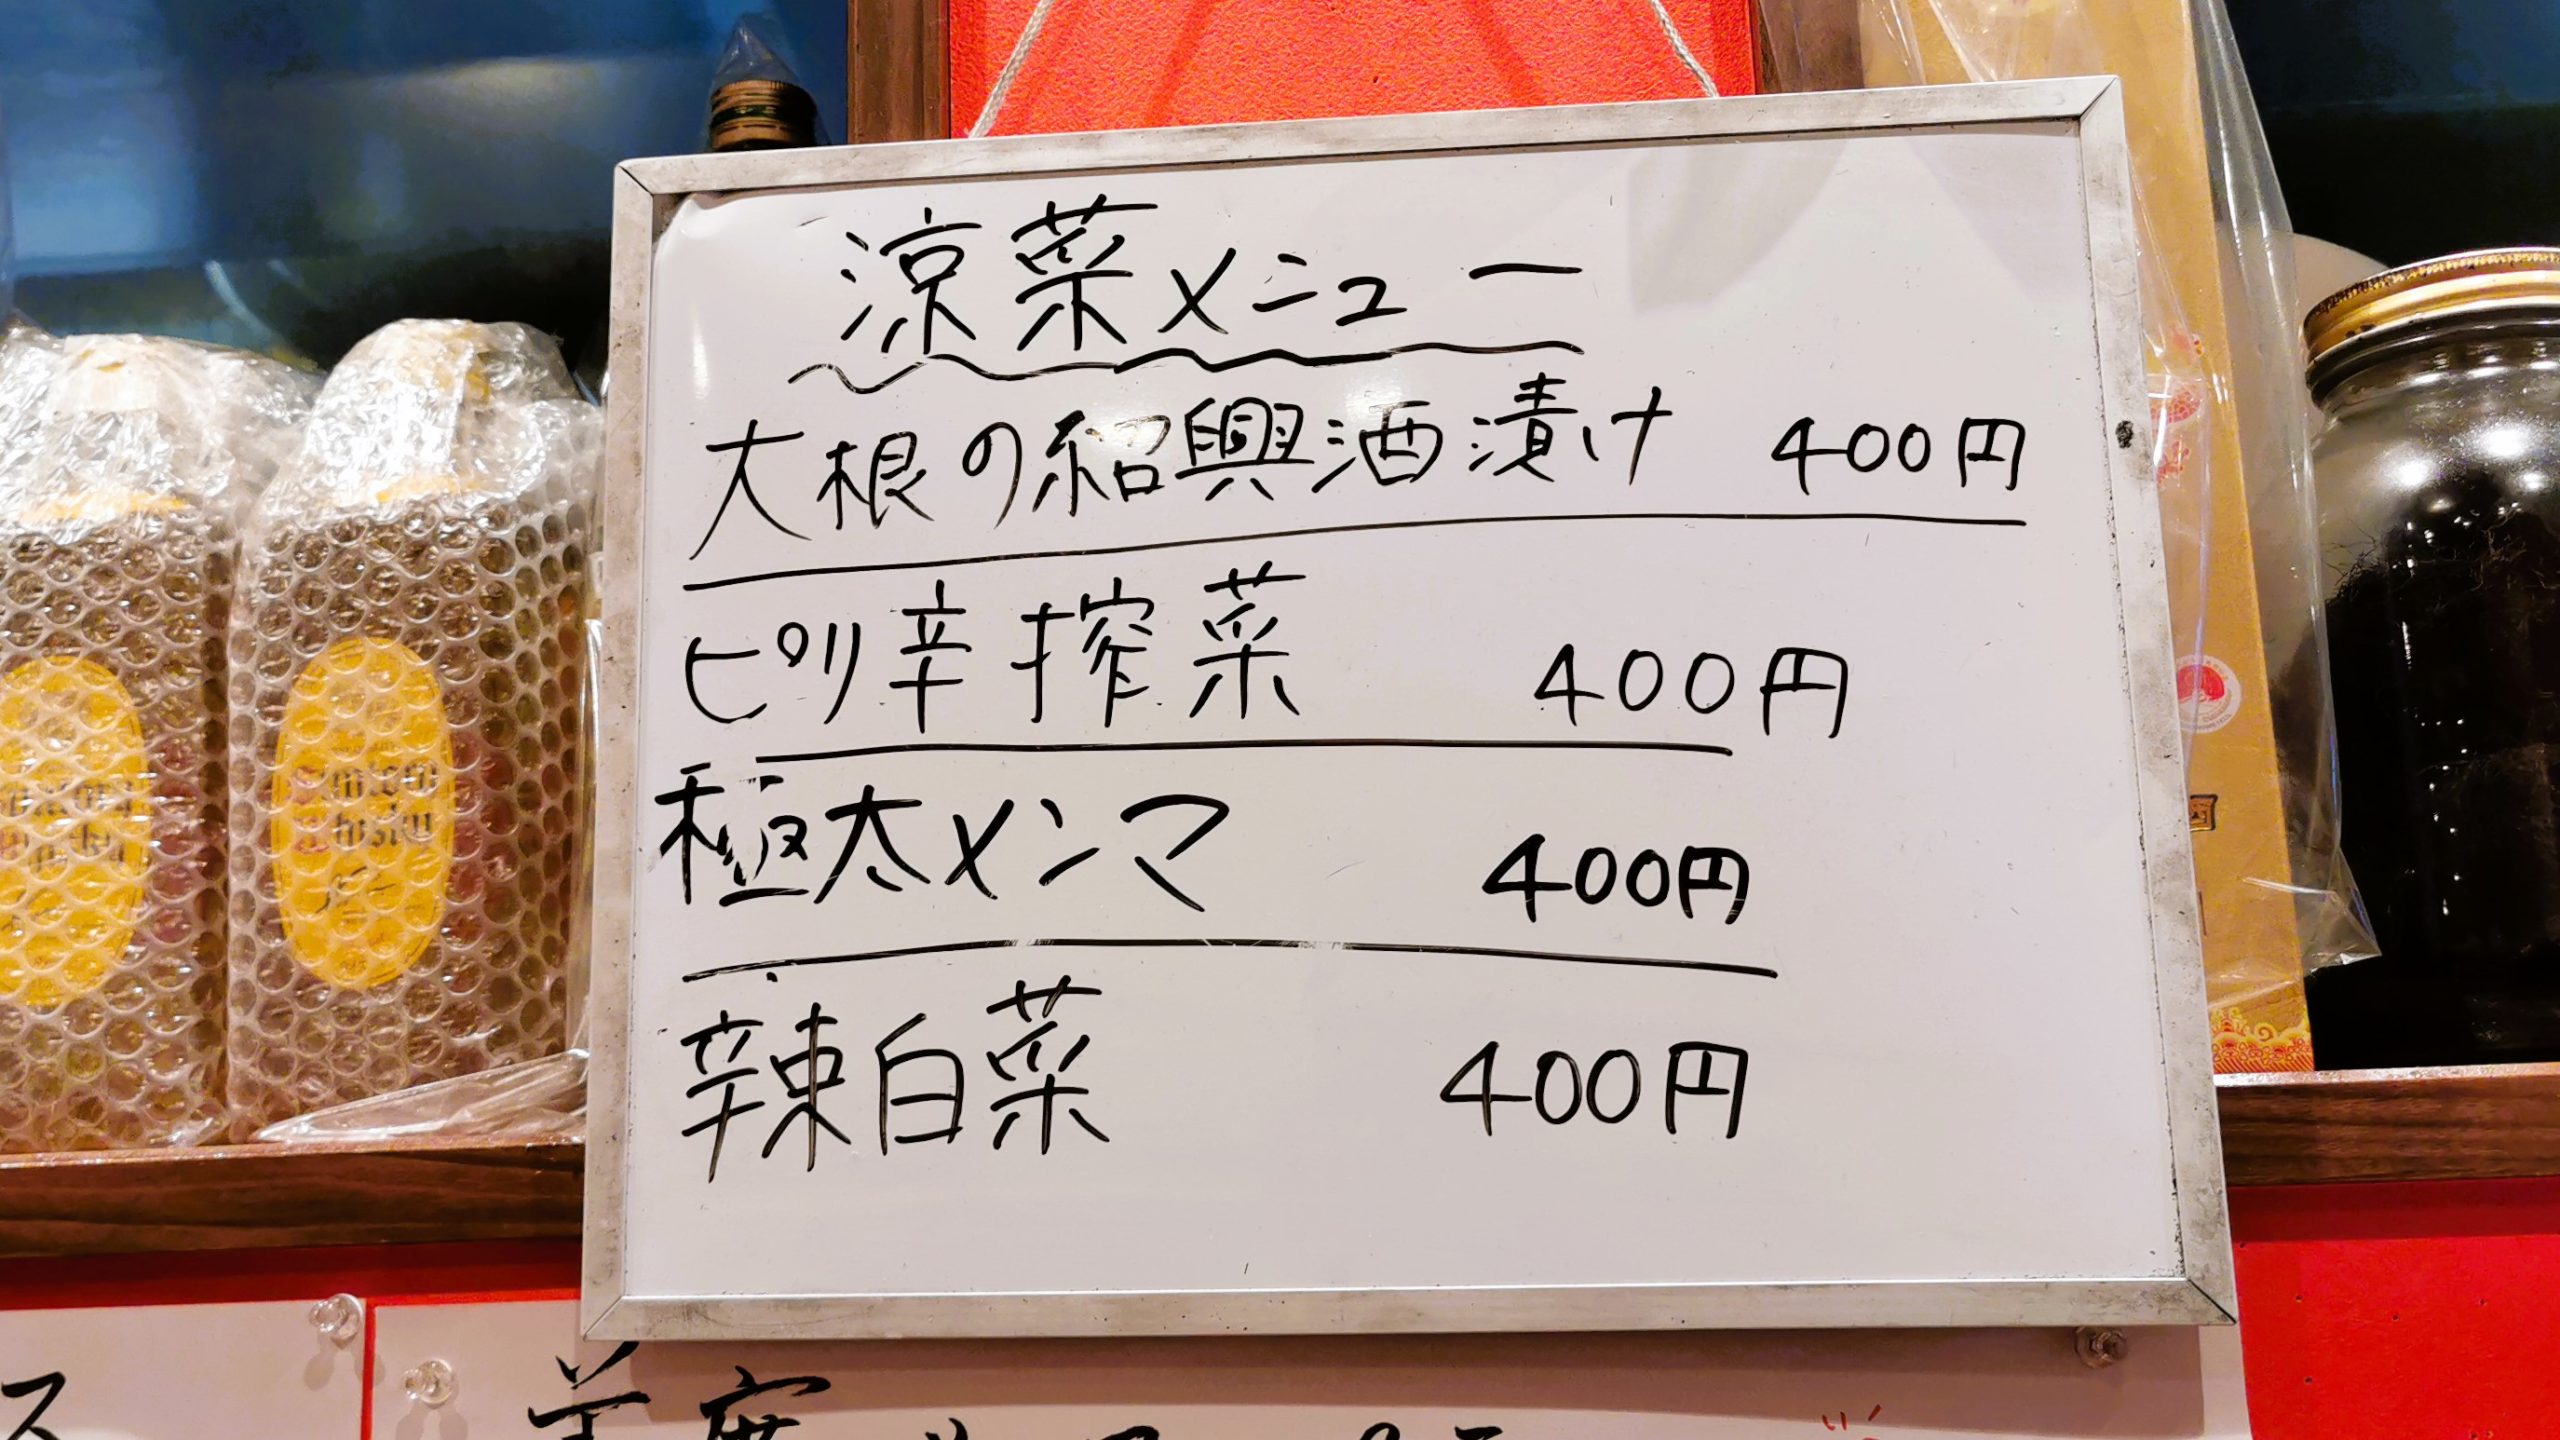 涼菜メニュー
大根の紹興酒漬け 400円
ピリ辛搾菜 400円
極太メンマ 400円
辣白菜 400円